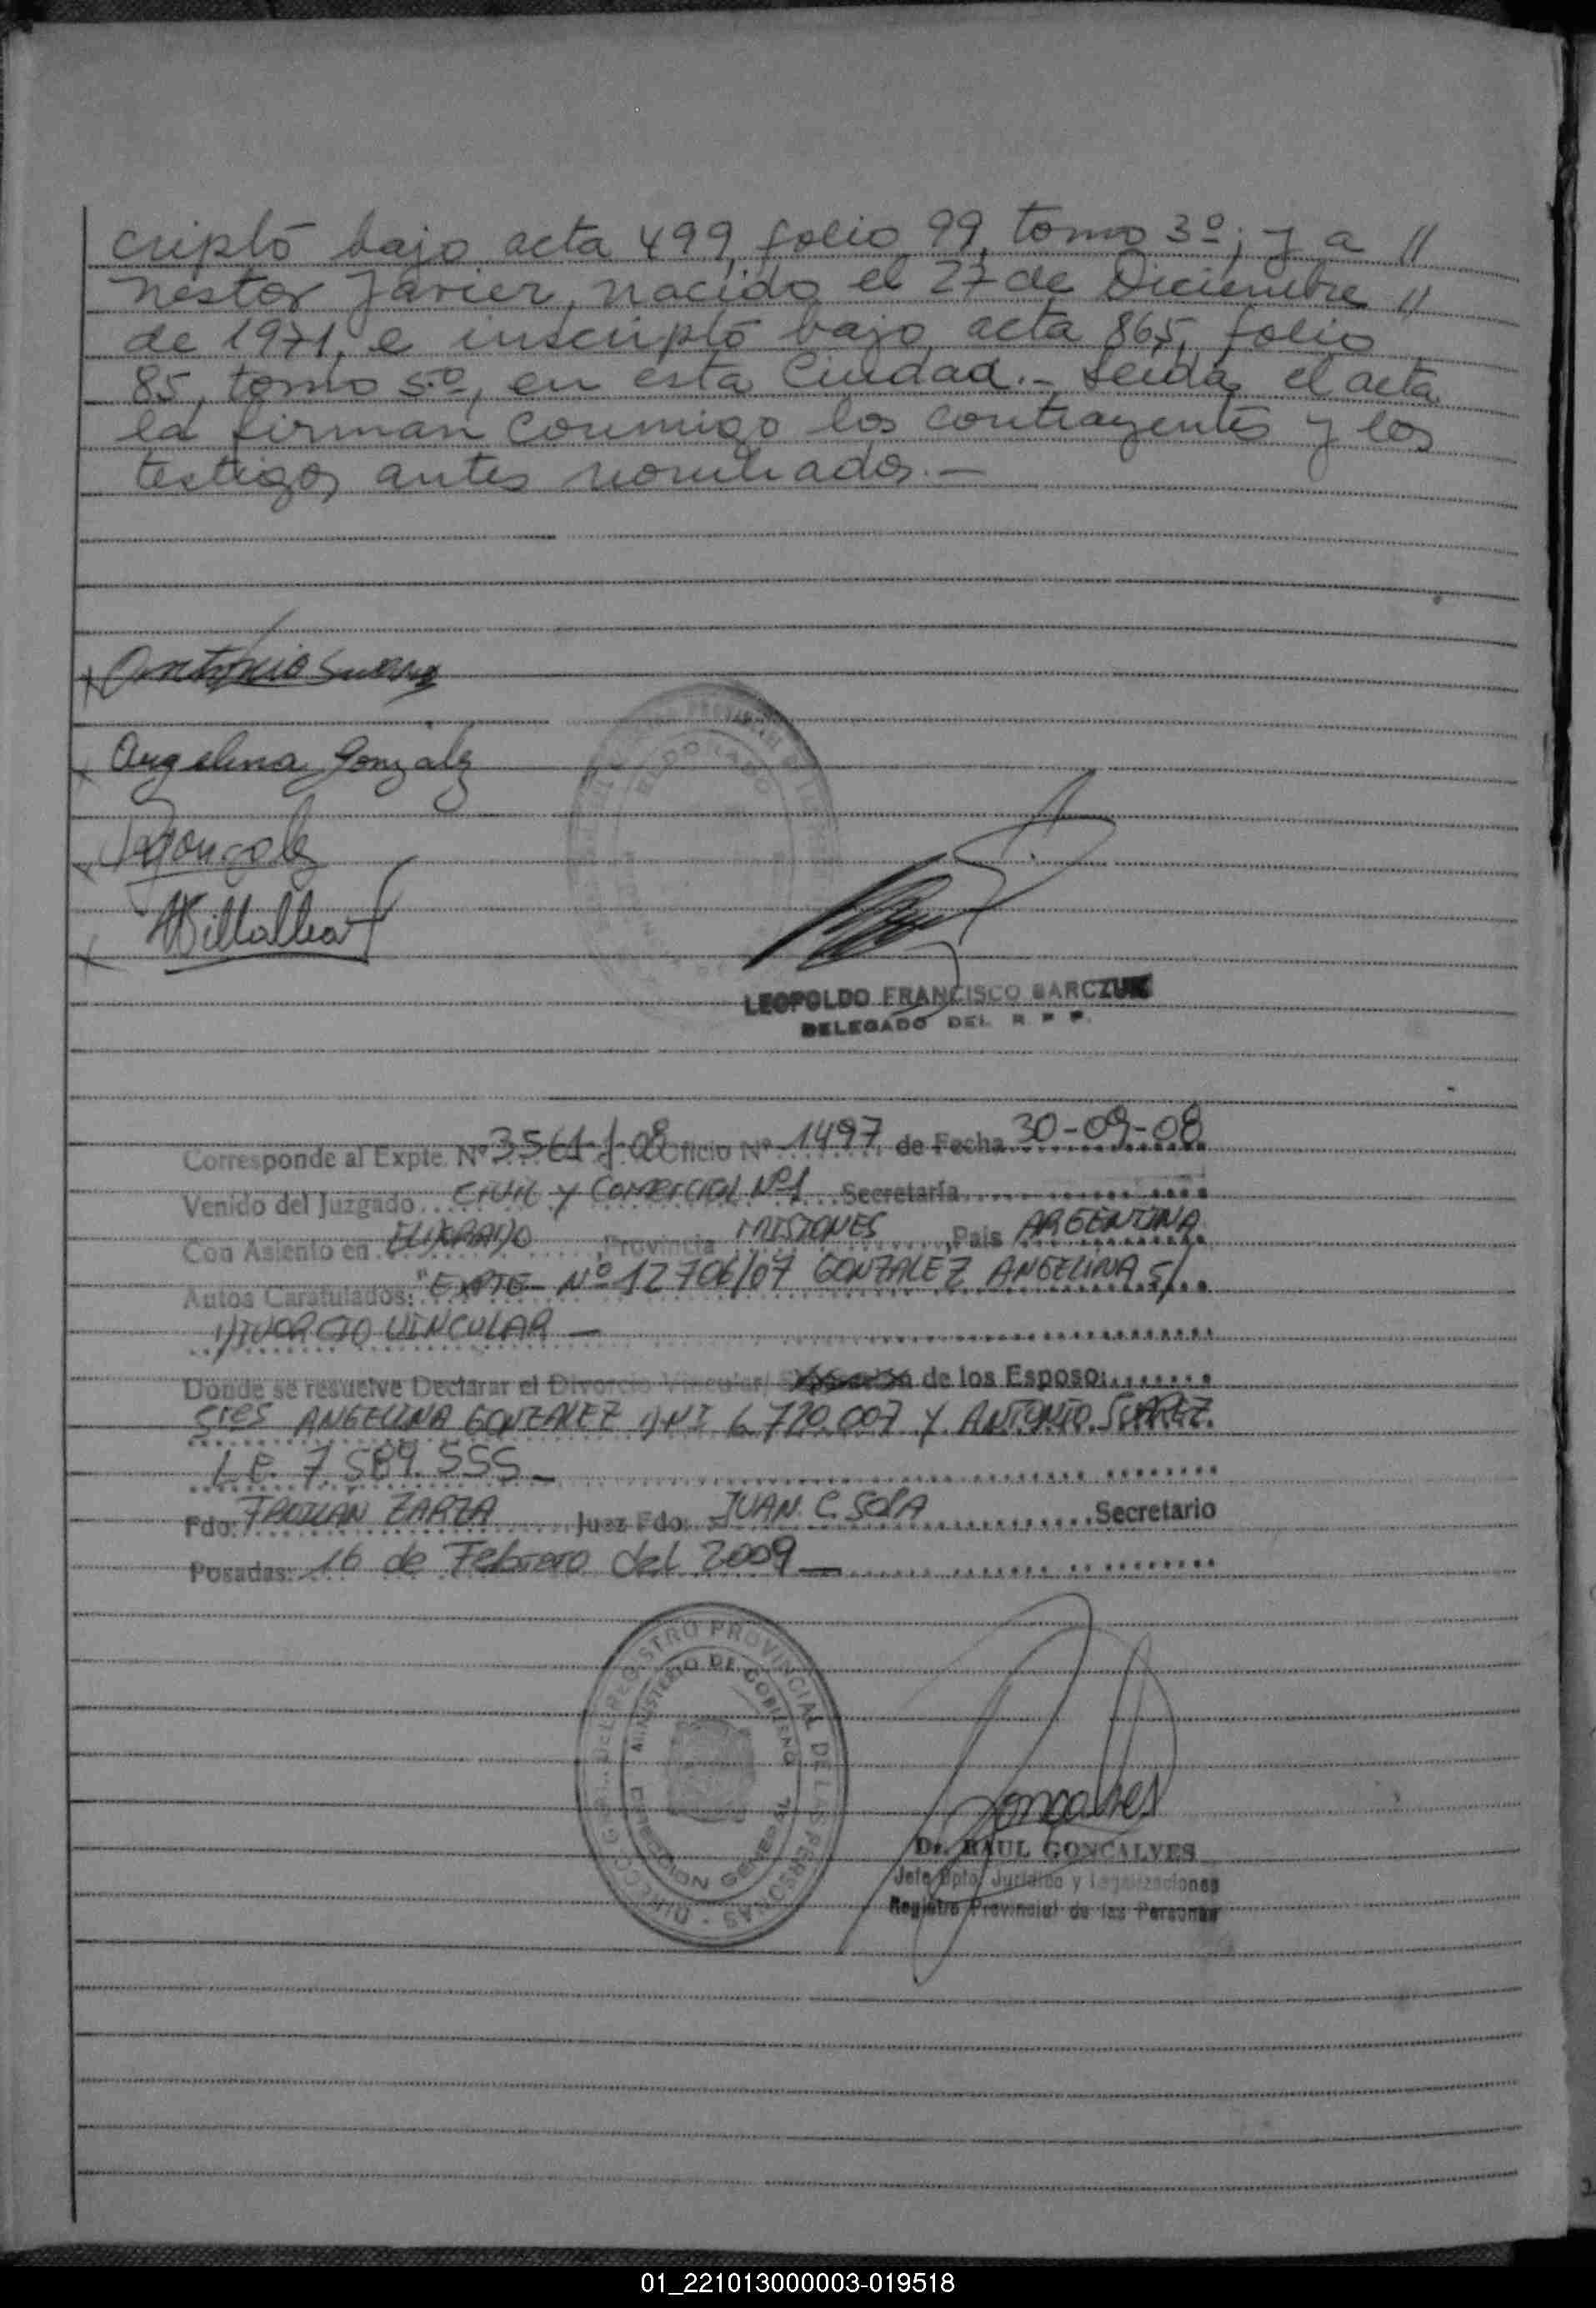 criptó bajo acta 499, folio 99, tomo 3º; y a //
Néstor Javier, nacido el 27 de Diciembre //
de 1971, e inscriptó bajo acta 865, folio
85, tomo 5º, en esta Ciudad.- Leída el acta
la firman conmigo los contrayentes y los
testigos antes nombrados.-
Antonio Suarez
Angelina Gonzalez
Villalba
ELDORADO
LEOPOLDO FRANCISCO BARCZUK
DELEGADO DEL R P P.
Corresponde al Expte. Nº 3561-J-08 Oficio Nº 1497 de Fecha 30-09-08
Venido del Juzgado CIVIL Y COMERCIAL Nº1 Secretaría
Con Asiento en ELDORADO, Provincia MISIONES, Pais ARGENTINA
Autos Caratulados: "EXPTE Nº 12706/07 GONZALEZ ANGELINA S/
DIVORCIO VINCULAR -
Donde se resuelve Declarar el Divorcio Vincular/ de los Esposo:
Sres ANGELINA GONZALEZ DNI 6.720.007 Y ANTONIO SUAREZ.
L.E. 7.589.555 -
Fdo: FROILAN ZARZA Juez Fdo: JUAN C. SOSA Secretario
Posadas: 16 de Febrero del 2009 -
DIRECCION GRAL. DEL REGISTRO PROVINCIAL DE LAS PERSONAS
MINISTERIO DE GOBIERNO
DIRECCION GENERAL
Goncalves
Dr. RAUL GONCALVES
Jefe Dpto. Jurídico y Legalizaciones
Registro Provincial de las Personas
01_221013000003-019518